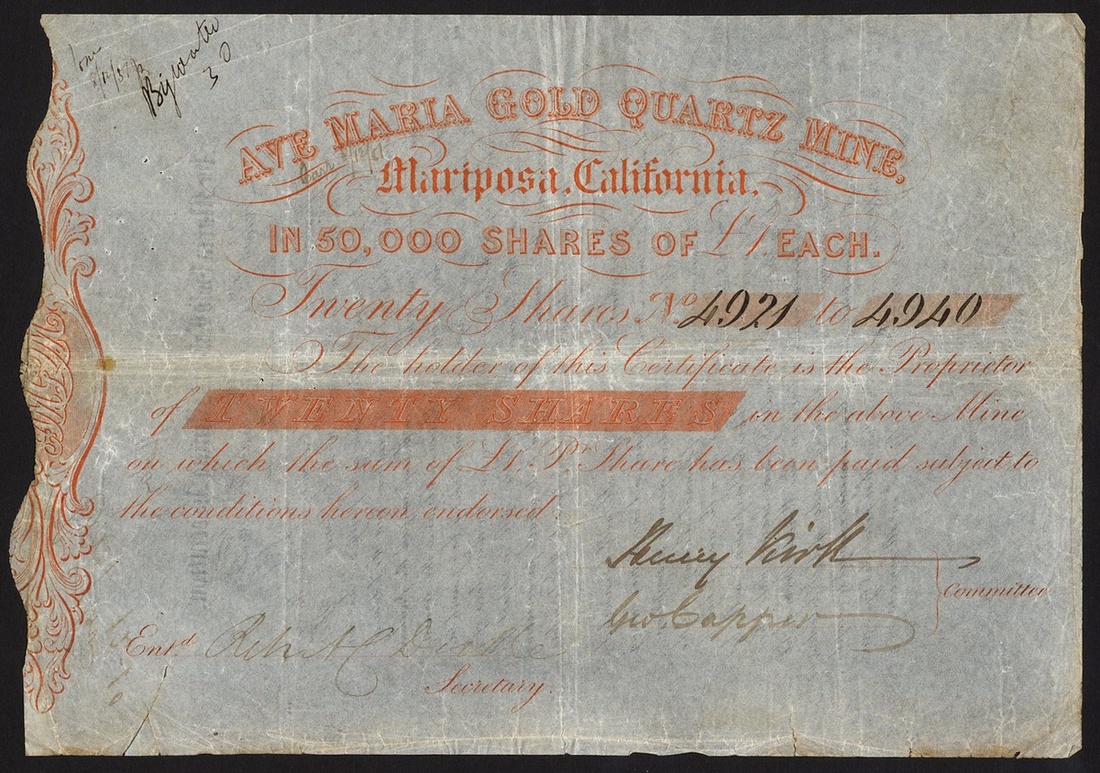 Bywater
30
AVE MARIA GOLD QUARTZ MINE,
Mariposa, California,
IN 50,000 SHARES OF £1. EACH.
Twenty Shares No 4921 to 4940
The holder of this Certificate is the Proprietor
of TWENTY SHARES, on the above Mine
on which the sum of £1. Pr. Share has been paid subject to
the conditions hereon endorsed
Henry Kirk
Geo. Capper
Committee
Entd
Secretary.